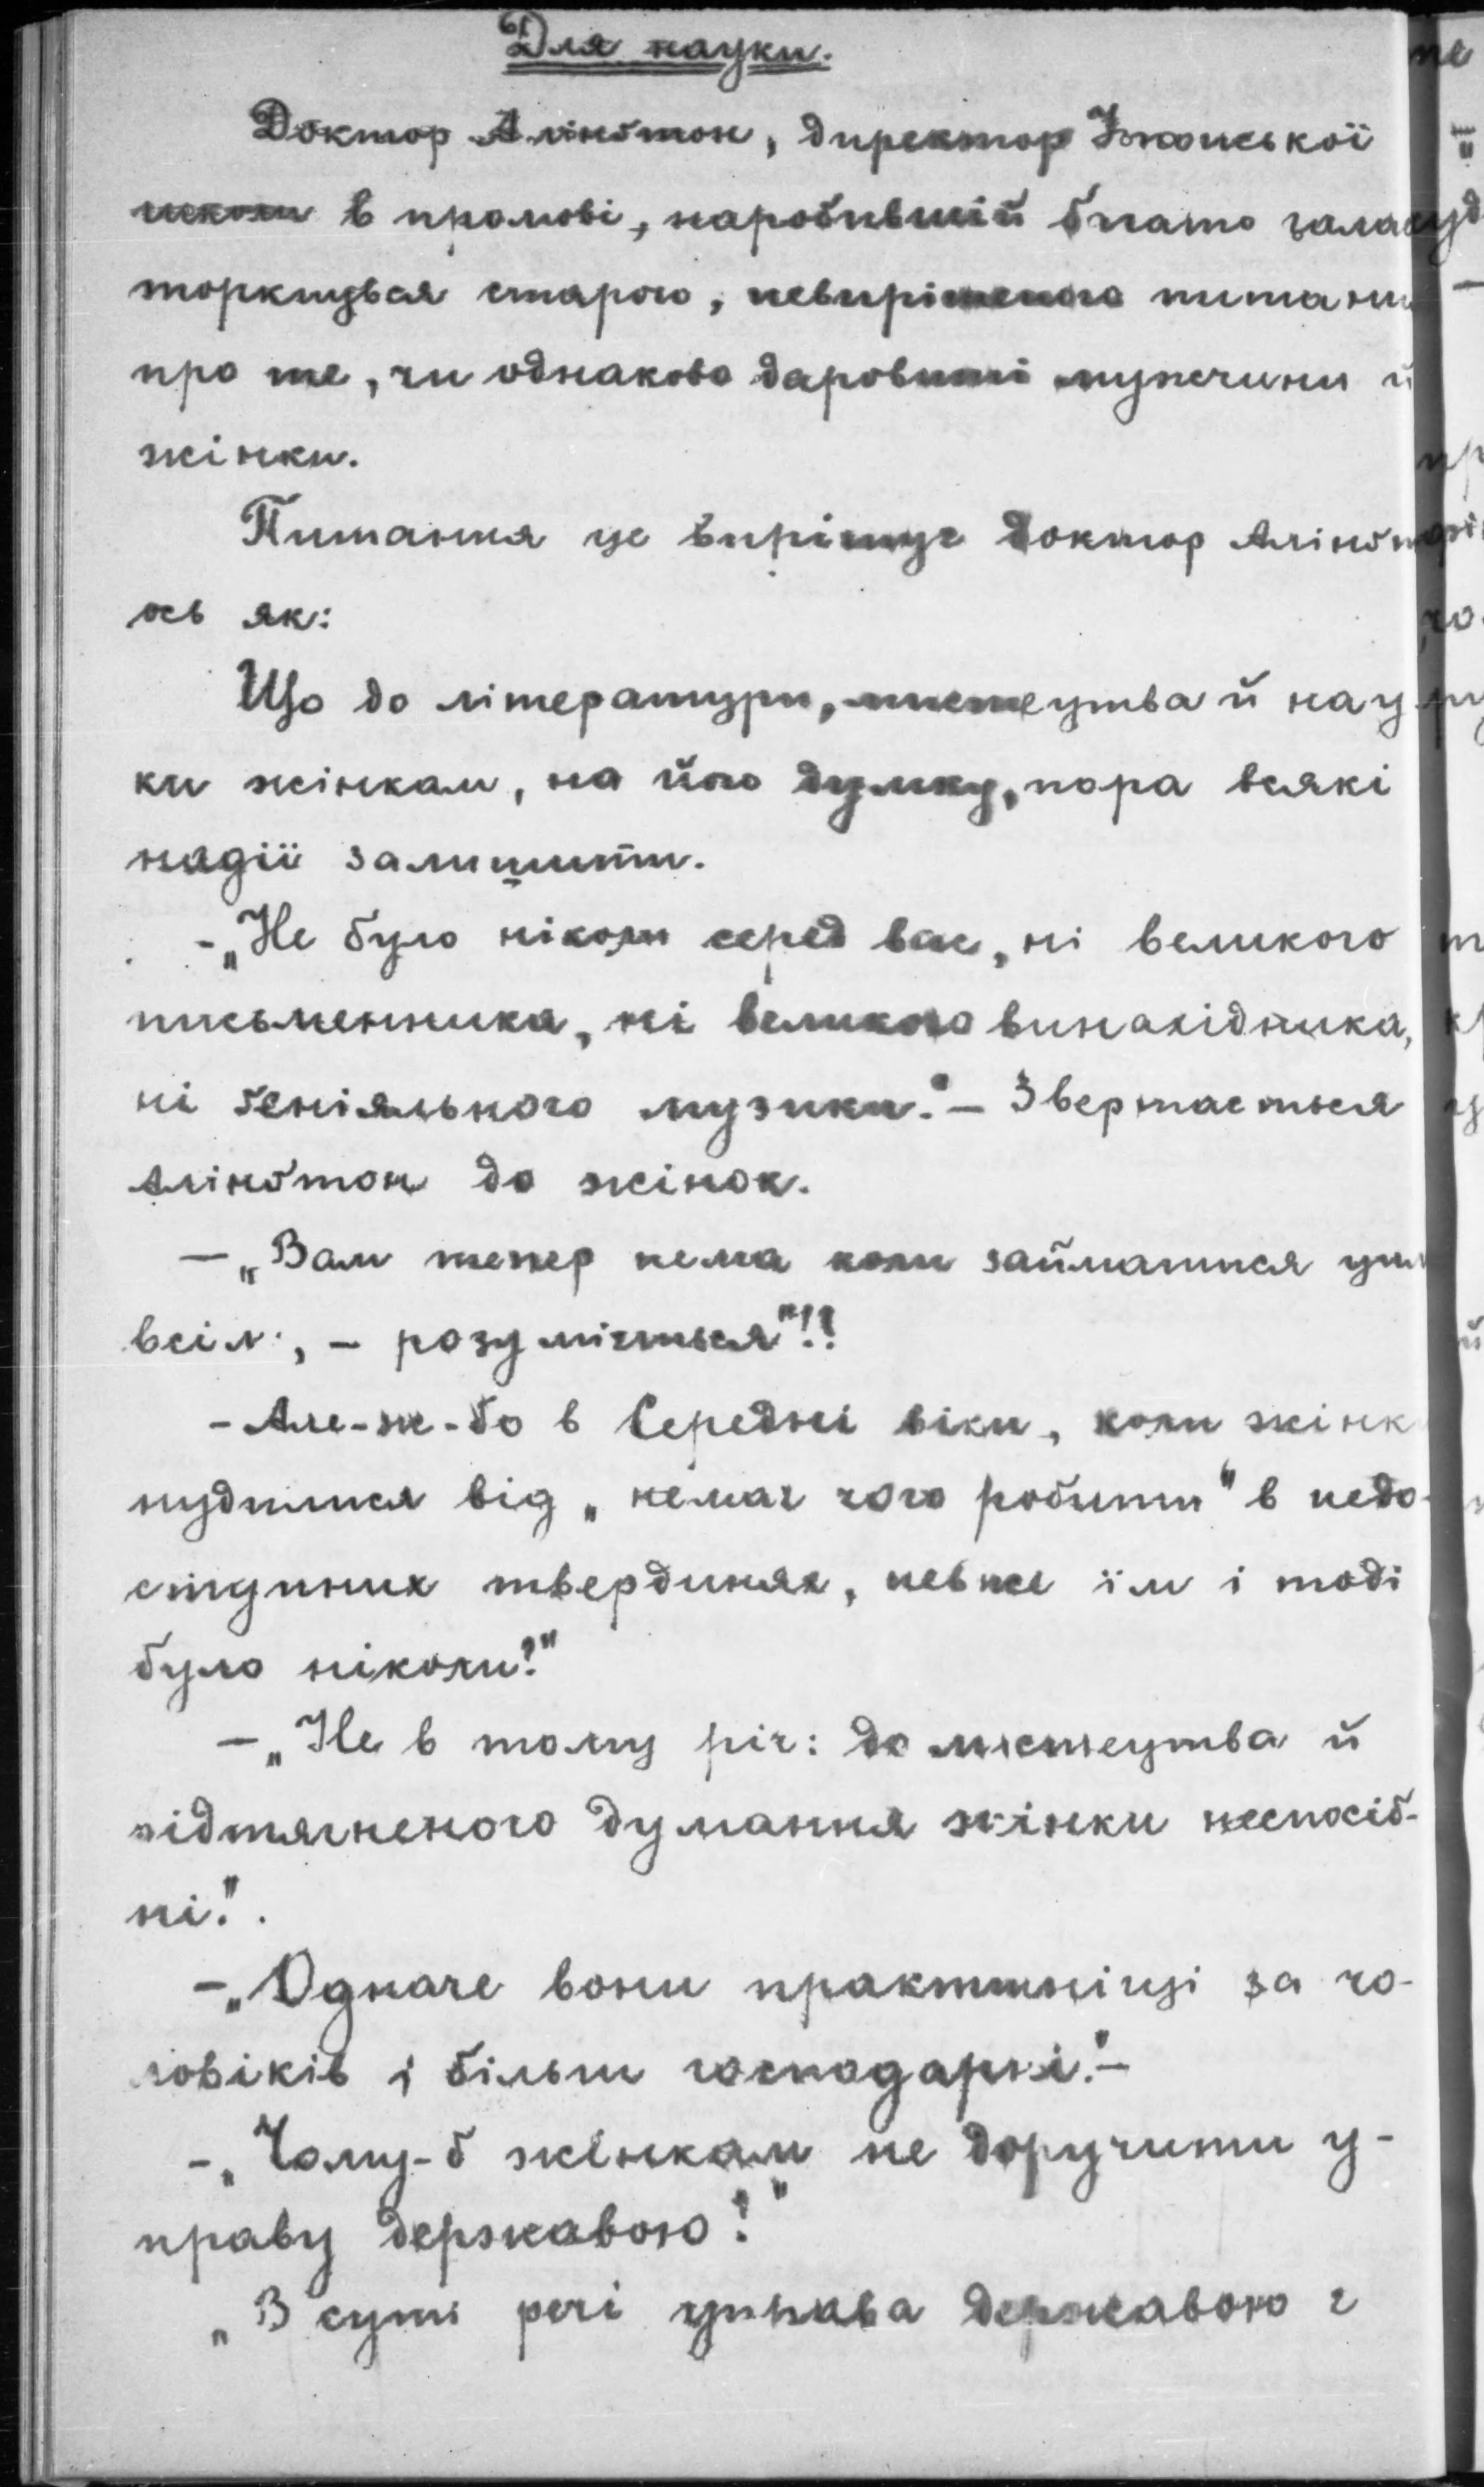 Для науки.
Доктор Алінґтон, директор Ітонської
школи в промові, наробившій багато гала
торкнувся старого, невирішеного питанн
про те, чи однаково даровиті мужчини й
жінки.
Питання це вирішує доктор Алінґт
ось як:
Що до літератури, мистецтва й нау
ки жінкам, на його думку, пора всякі
надії залишити.
- „Не було ніколи серед вас, ні великого
письменника, ні великого винахідника,
ні ґеніяльного музики." – Звертається
Алінґтон до жінок.
– „Вам тепер нема коли займатися цим
всім, – розуміється"!!
- Але-ж-бо в Середні віки, коли жінк
нудилися від „немає чого робити" в недо-
ступних твердинях, невже їм і тоді
було ніколи?"
– „Не в тому річ: до мистецтва й
відтягненого думання жінки неспосіб-
ні.".
– „Одначе вони практичніщі за чо-
ловіків і більш господарні." –
- „Чому-б жінкам не доручити у-
праву державою?"
„В суті речі управа державою є